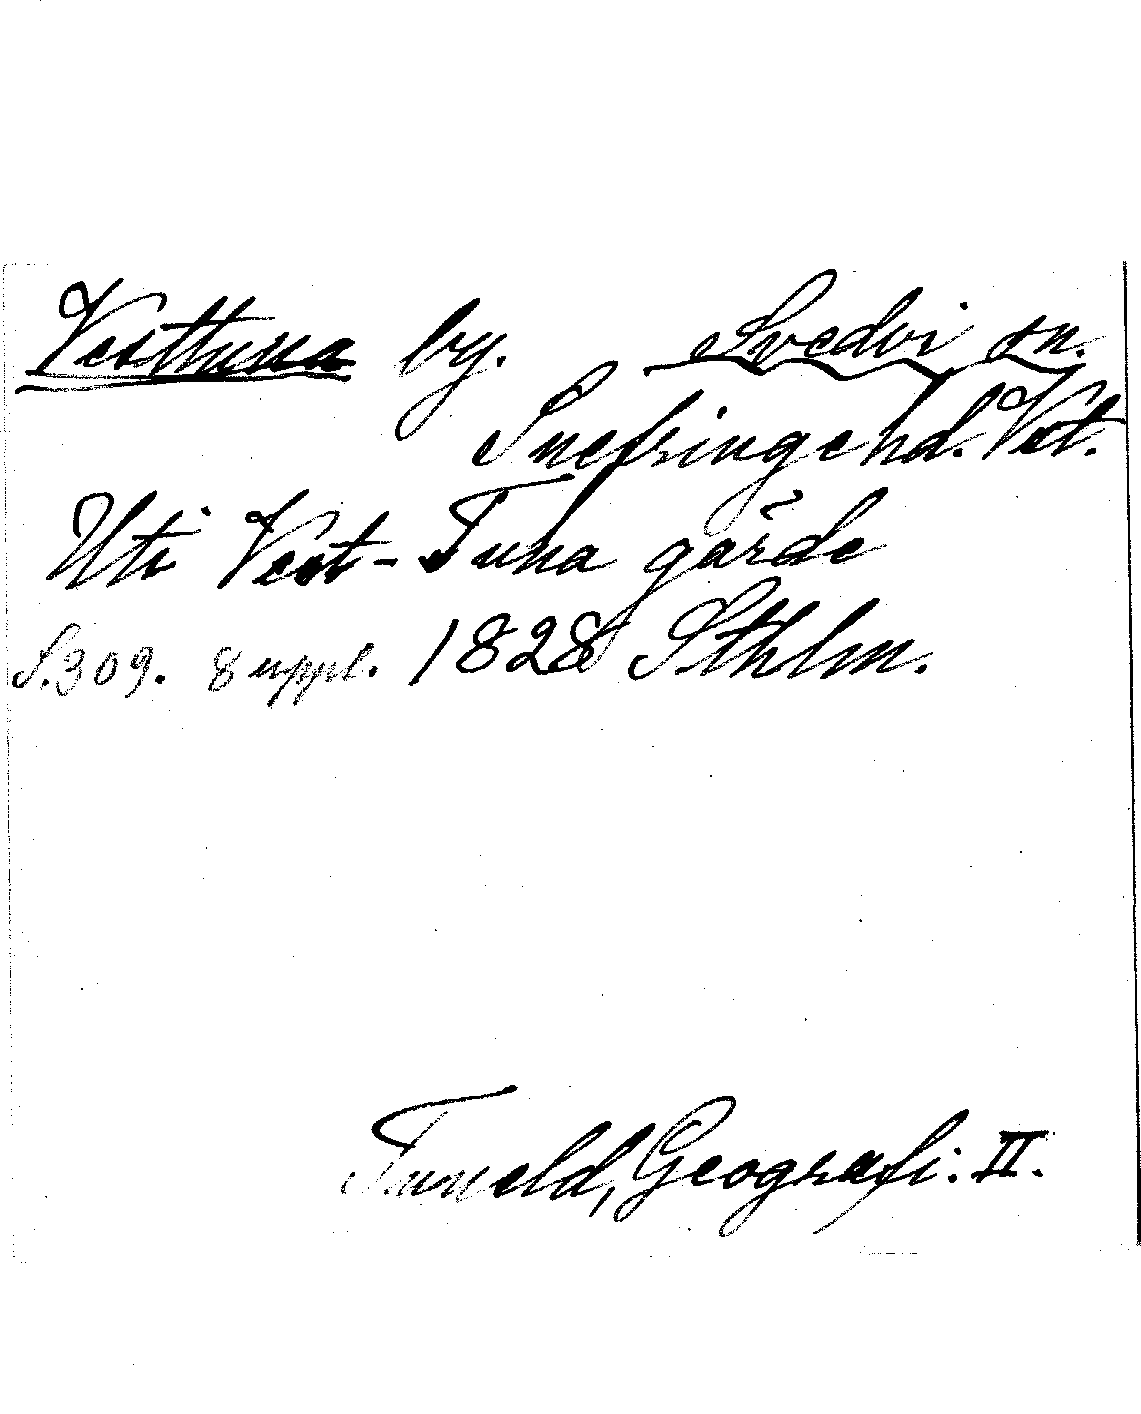 Vesttuna by. Svedvi sn.
Snefringe hd. Vst.
Uti Vest-Tuna gärde
S. 309. 8 uppl. 1828 Sthlm.
Tuneld, Geografi. II.